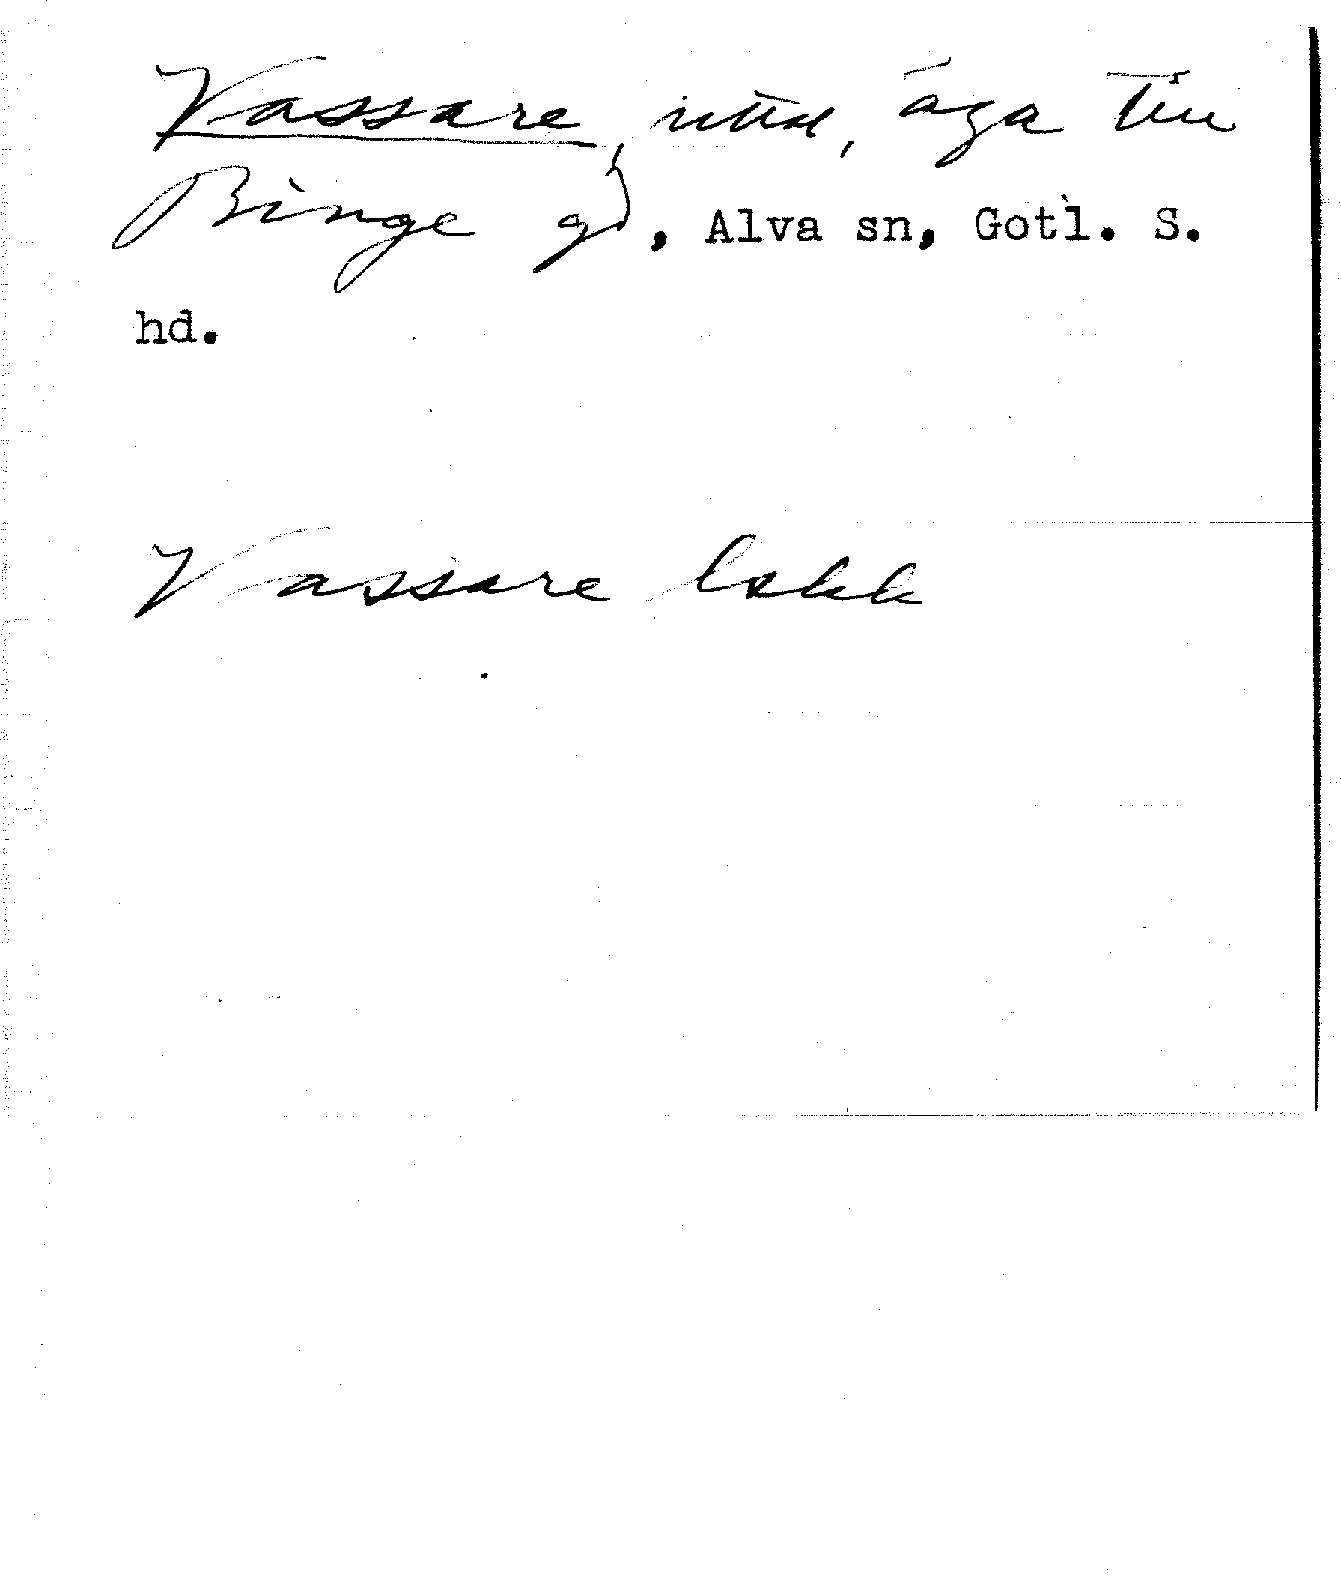 Vassare, äga till
Binge gd, Alva sn, Gotl. S.
hd.
Vassare lokk